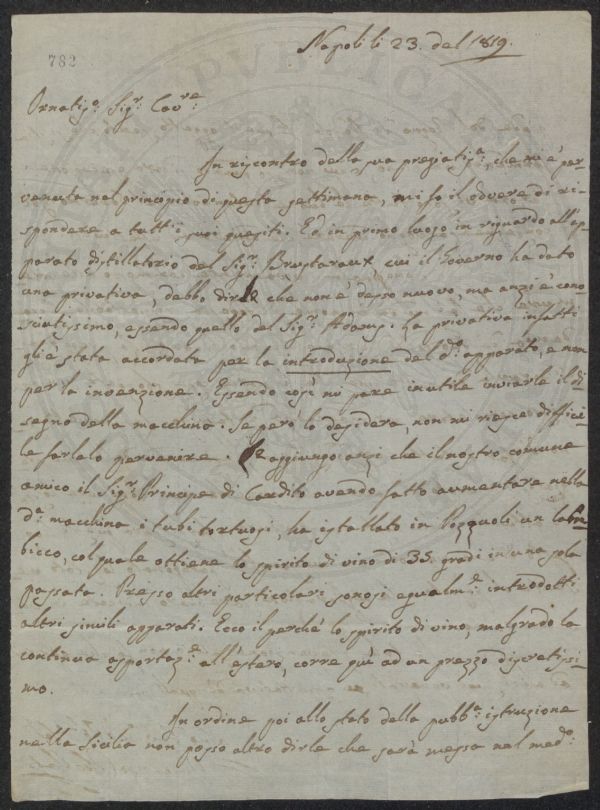 Napoli li 23. del 1819.
782
Ornatis.o Sig.r Cav.re
In riscontro della sua pregiatis.a che mi è per-
venuta nel principio di questa settimana, mi fo il dovere di ri-
spondere a tutt'i suoi quesiti. Ed in primo luogo in riguardo all'ap-
parato distillatorio del Sig.r cui il Governo ha dato
una privativa, debbo dirle che non è desso nuovo, ma anzi è cono-
sciutissimo, essendo quello del Sig.r Adams: la privativa infatti
gli è stata accordata per la introduzione del d.o apparato, e non
per la invenzione. Essendo così mi pare inutile inviarle il di-
segno della macchina. Se però lo desidera, non mi riesce diffici-
le farlelo pervenire. Le aggiungo anzi che il nostro comune
amico il Sig.r Principe di Cardito avendo fatto aumentare nella
d.a macchina i tubi tortuosi, ha istallato in Pozzuoli un lam-
bicco, col quale ottiene lo spirito di vino di 35 gradi in una sola
passata. Presso altri particolari sonosi egualm.e introdotti
altri simili apparati. Ecco il perchè lo spirito di vino, malgrado la
continua asportaz.e all'estero, corre quì ad un prezzo discretissi-
mo.
In ordine poi allo stato della pubb.a istruzione
nella Sicilia non posso altro dirle che sarà messa nel med.o